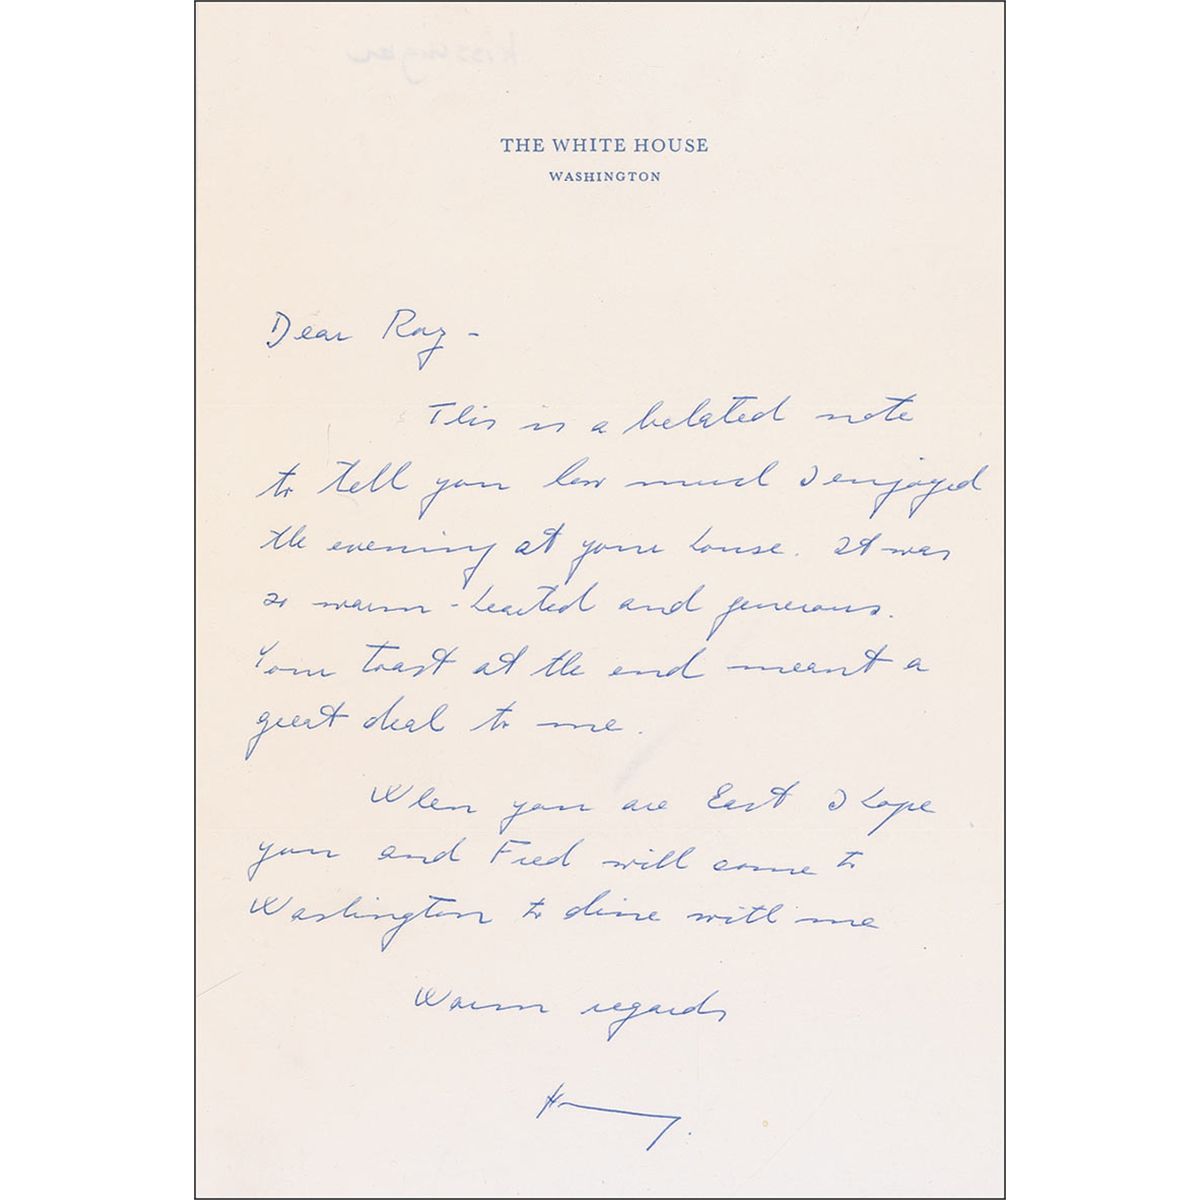 THE WHITE HOUSE
WASHINGTON
Dear Roz -
This is a belated note
to tell you how much I enjoyed
the evening at your house. It was
so warm-hearted and generous.
Your toast at the end meant a
great deal to me.
When you are East I hope
you and Fred will come to
Washington to dine with me
Warm regards